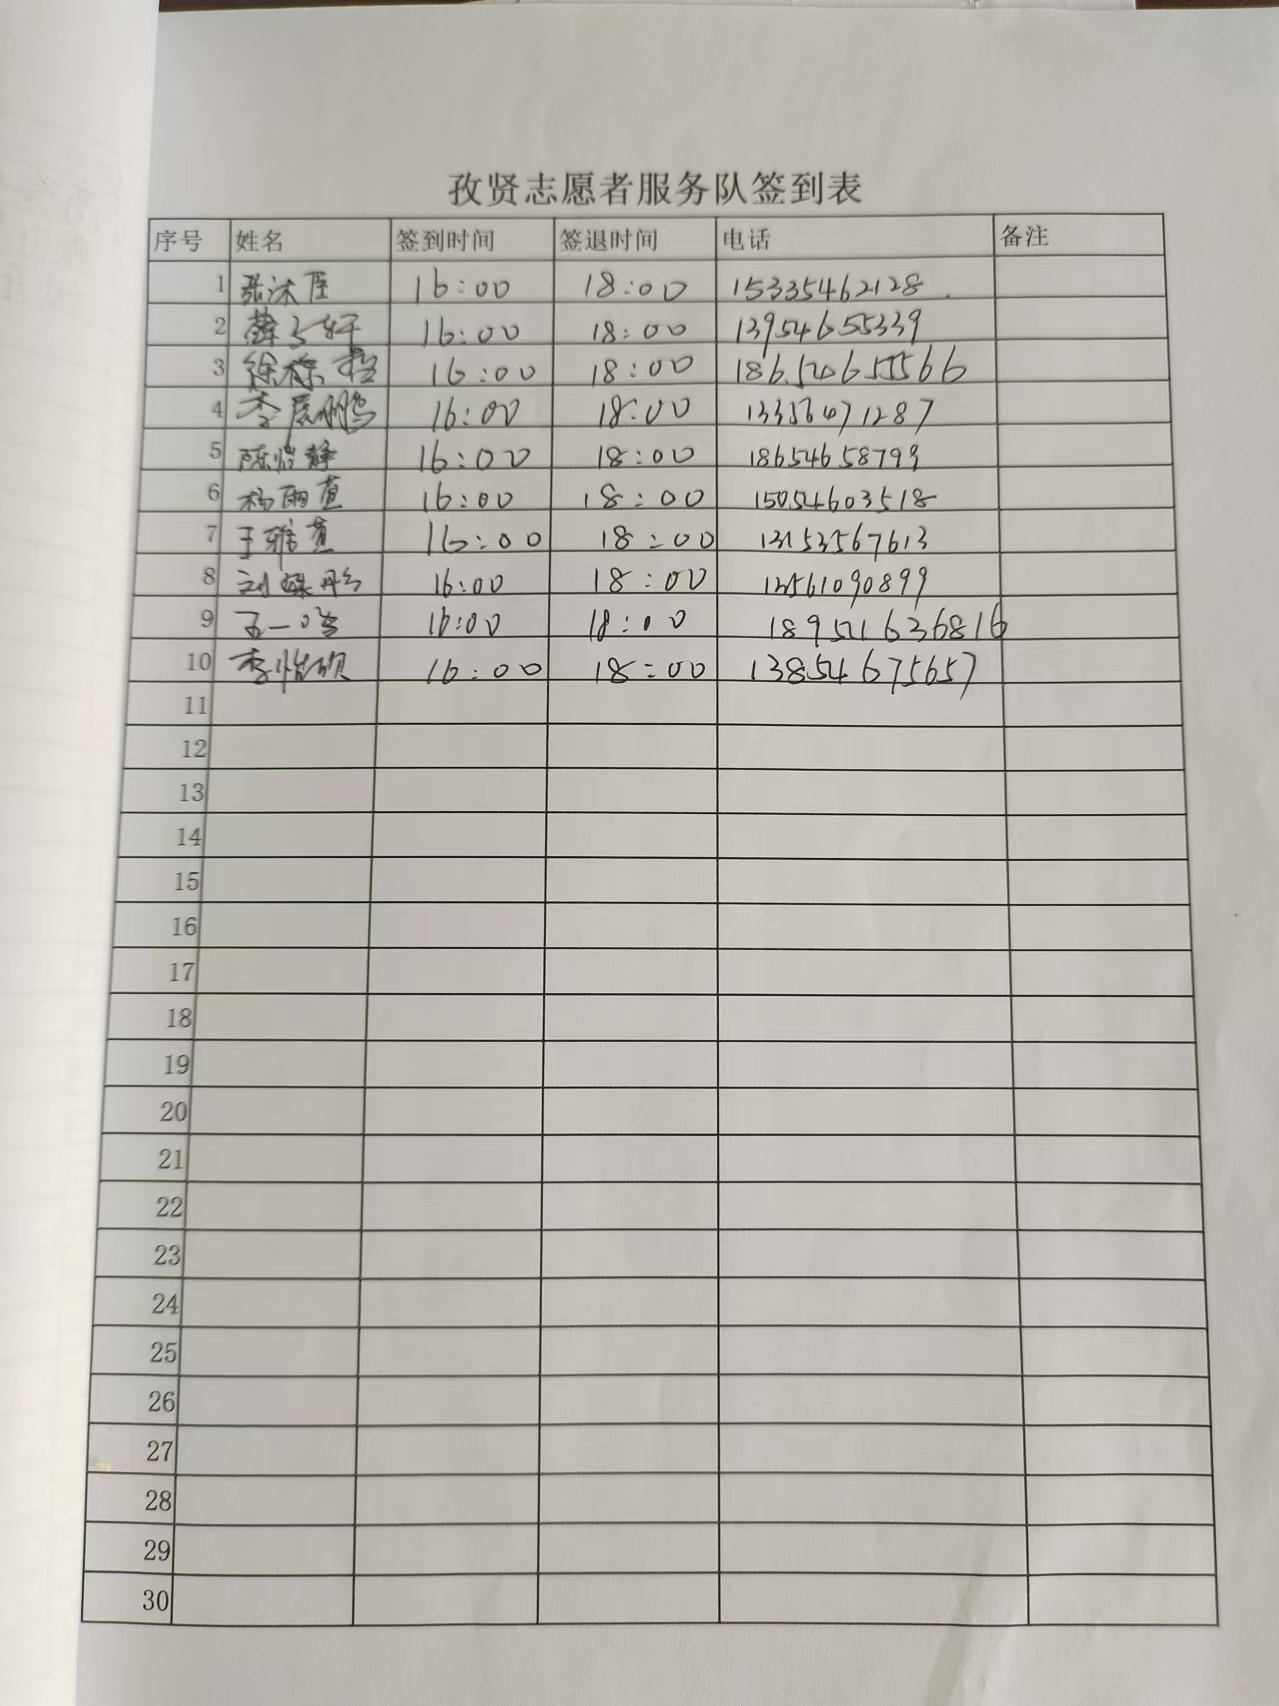 孜贤志愿者服务队签到表
序号 姓名 签到时间 签退时间 电话 备注
1 张沐臣 16:00 18:00 15335462128
2 薛子轩 16:00 18:00 13954655339
3 徐梓 16:00 18:00 186520655566
4 李展鹏 16:00 18:00
5 陈怡静 16:00 18:00 18654658799
6 杨雨萱 16:00 18:00 15054603518
7 王雅萱 16:00 18:00
8 刘 彤 16:00 18:00 13561090899
9 王一鸣 16:00 18:00
10 李怡硕 16:00 18:00 13854675657
11
12
13
14
15
16
17
18
19
20
21
22
23
24
25
26
27
28
29
30